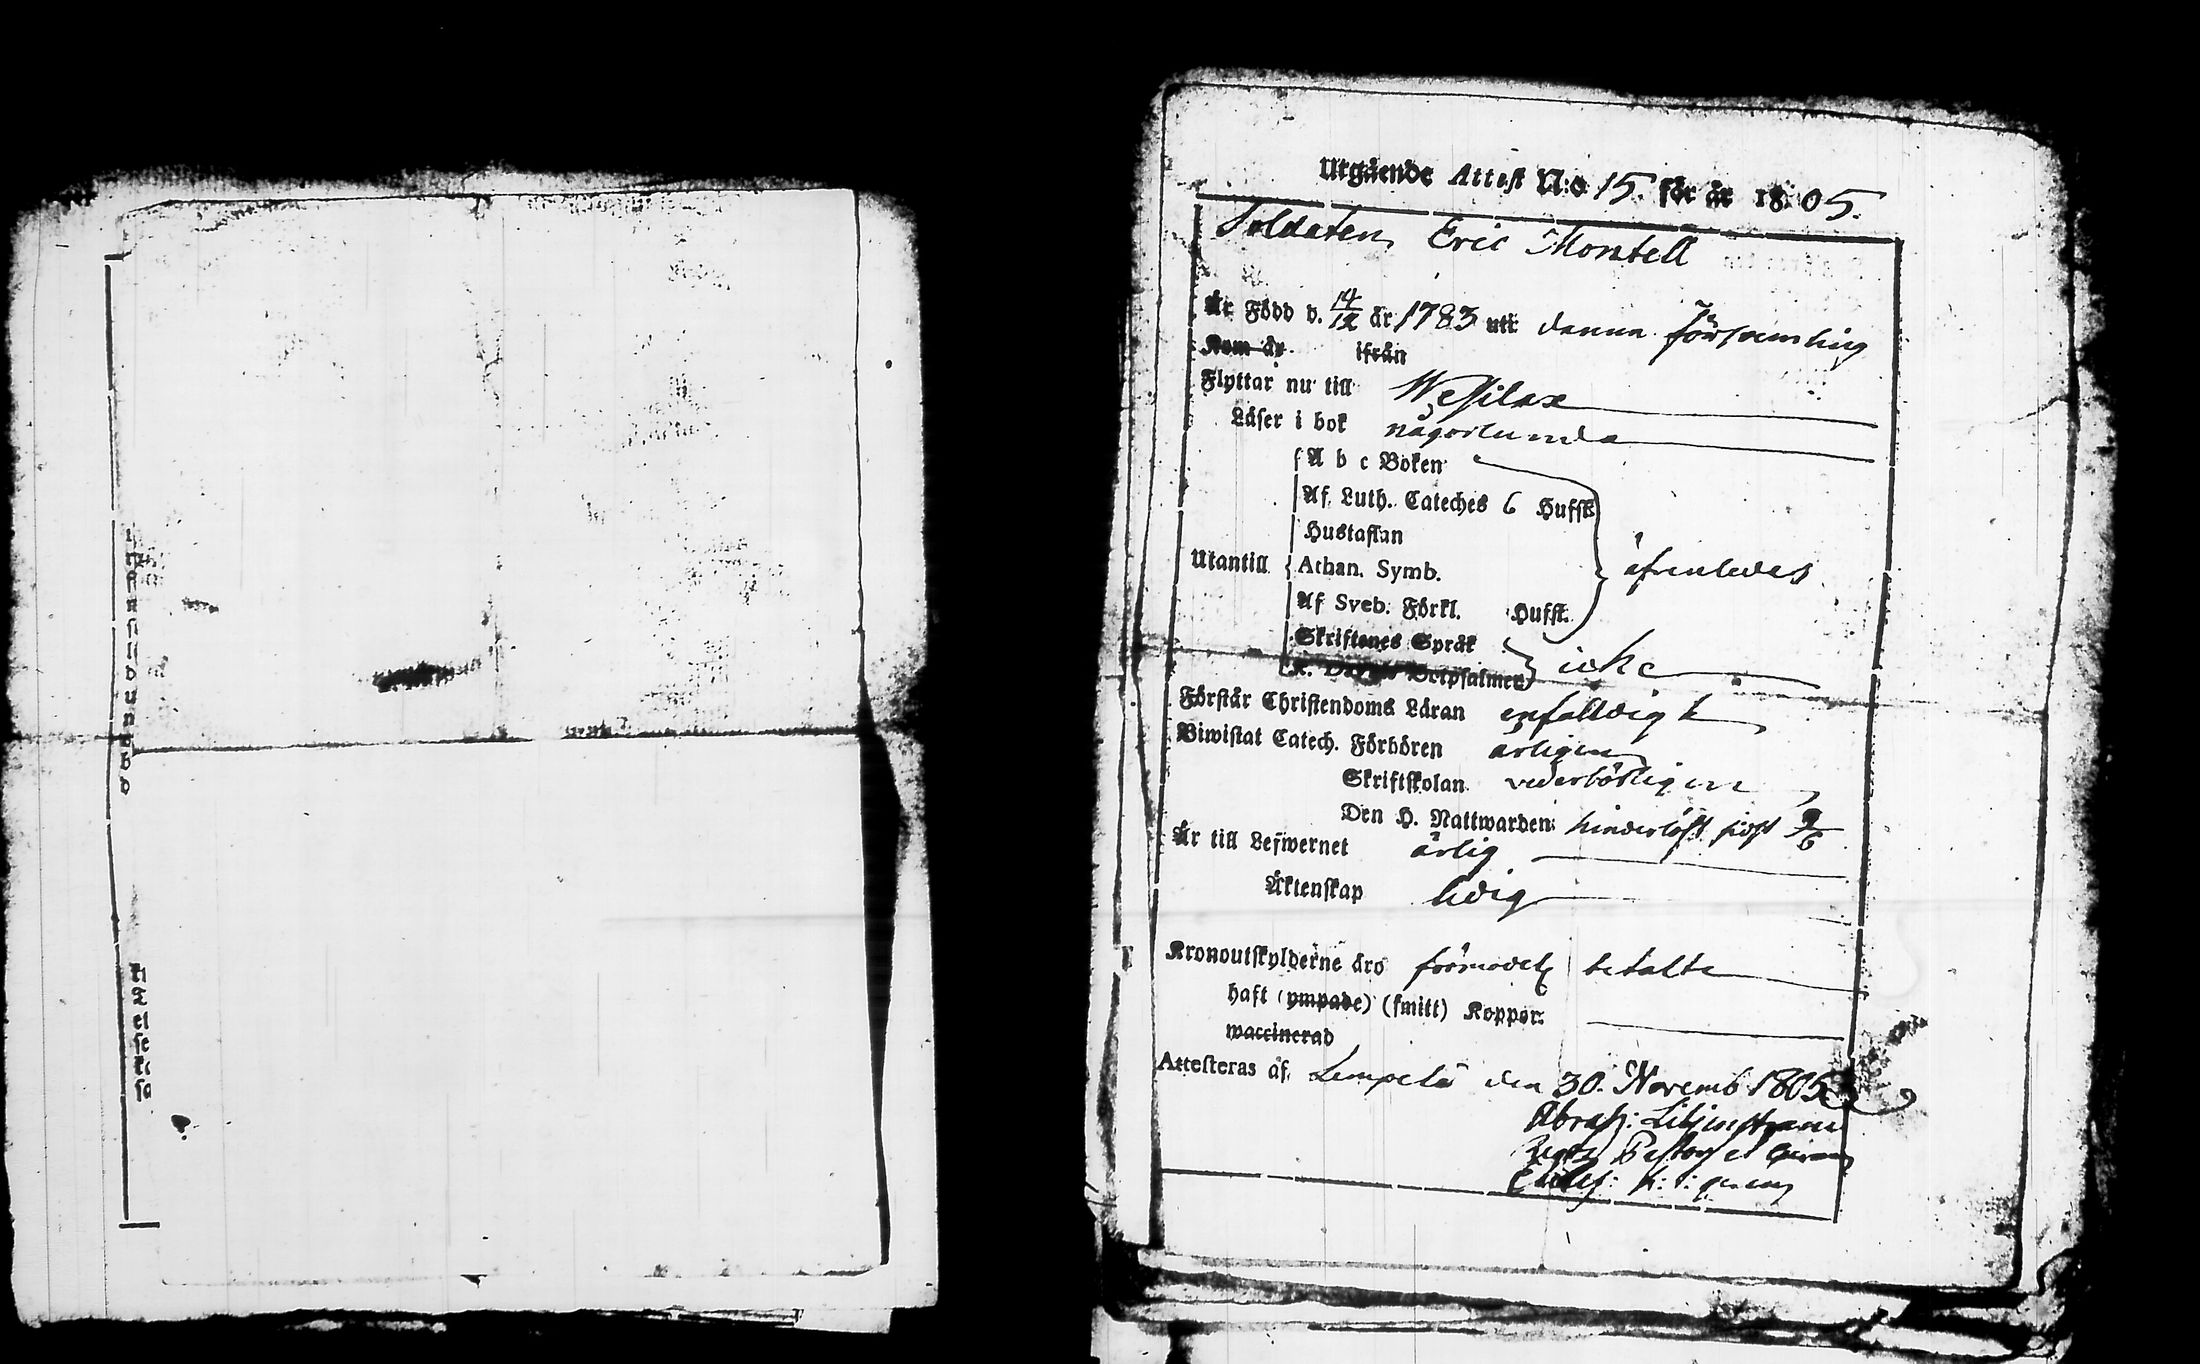 Utgående Attest N:o 15. för år 18:05.
Soldaten Eric Montell
Är Född d. 14/12 år 1783 uti denna församling
Kom år ifrån
Flyttar nu till Wesilax
Läser i bok någorlunda
A b c Boken
Af Luth. Cateches 6 Hufst.
Hustaflan
Utantill Athan. Symb. äfvenledes
Af Sveb. Förkl. Hufst.
Skriftenes Språk
Botpsalmer icke
Förstår Christendoms Läran enfalldigt
Biwistat Catech. Förhören årligen
Skriftskolan vederbörligen
Den H. Nattwarden hinderlöst sidst 9/6
Är till Lefwernet ärlig
Äktenskap ledig
Kronoutskylderne äro förmodel. betalte
haft (ympade) (smitt) Koppor
waccinerad
Attesteras af Lempelä den 30. Novemb 1805
Abrah: Liljenstrand
Pastor et